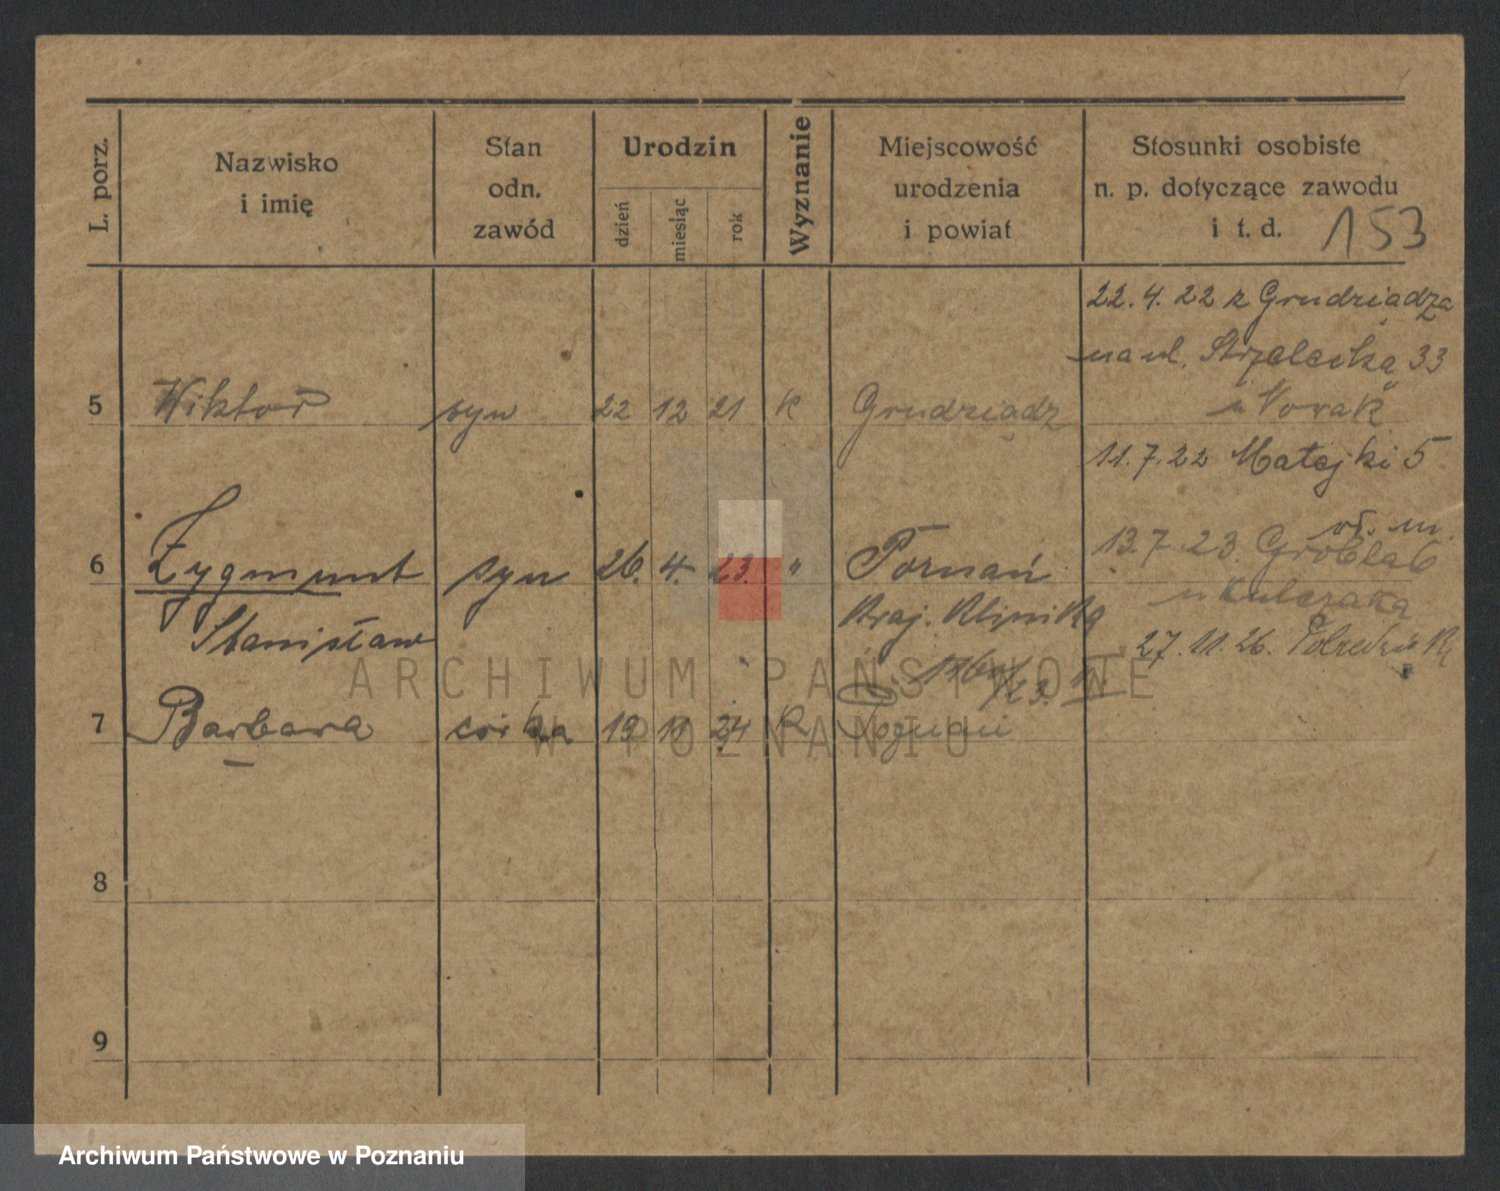 L. porz.
Nazwisko
i imię
Stan
odn.
zawód
Urodzin
dzień
miesiąc
rok
Wyznanie
Miejscowość
urodzenia
i powiat
Stosunki osobiste
n. p. dotyczące zawodu
i t. d.
153
22.4.22 z Grudziądza
na ul. Strzelecką 33
5 Wiktor syn 22 12 21 K Grudziądz
u Nowak
11.7.22 Matejki 5
6 Zygmunt syn 26. 4. 23. " Poznań
13.7.23. Grobla 6
Stanisław
Kraj. Klinika
u Kulczaka
27.11.26.
7 Barbara córka 19 11 24 K Poznań
8
9
ARCHIWUM PAŃSTWOWE
W POZNANIU
Archiwum Państwowe w Poznaniu